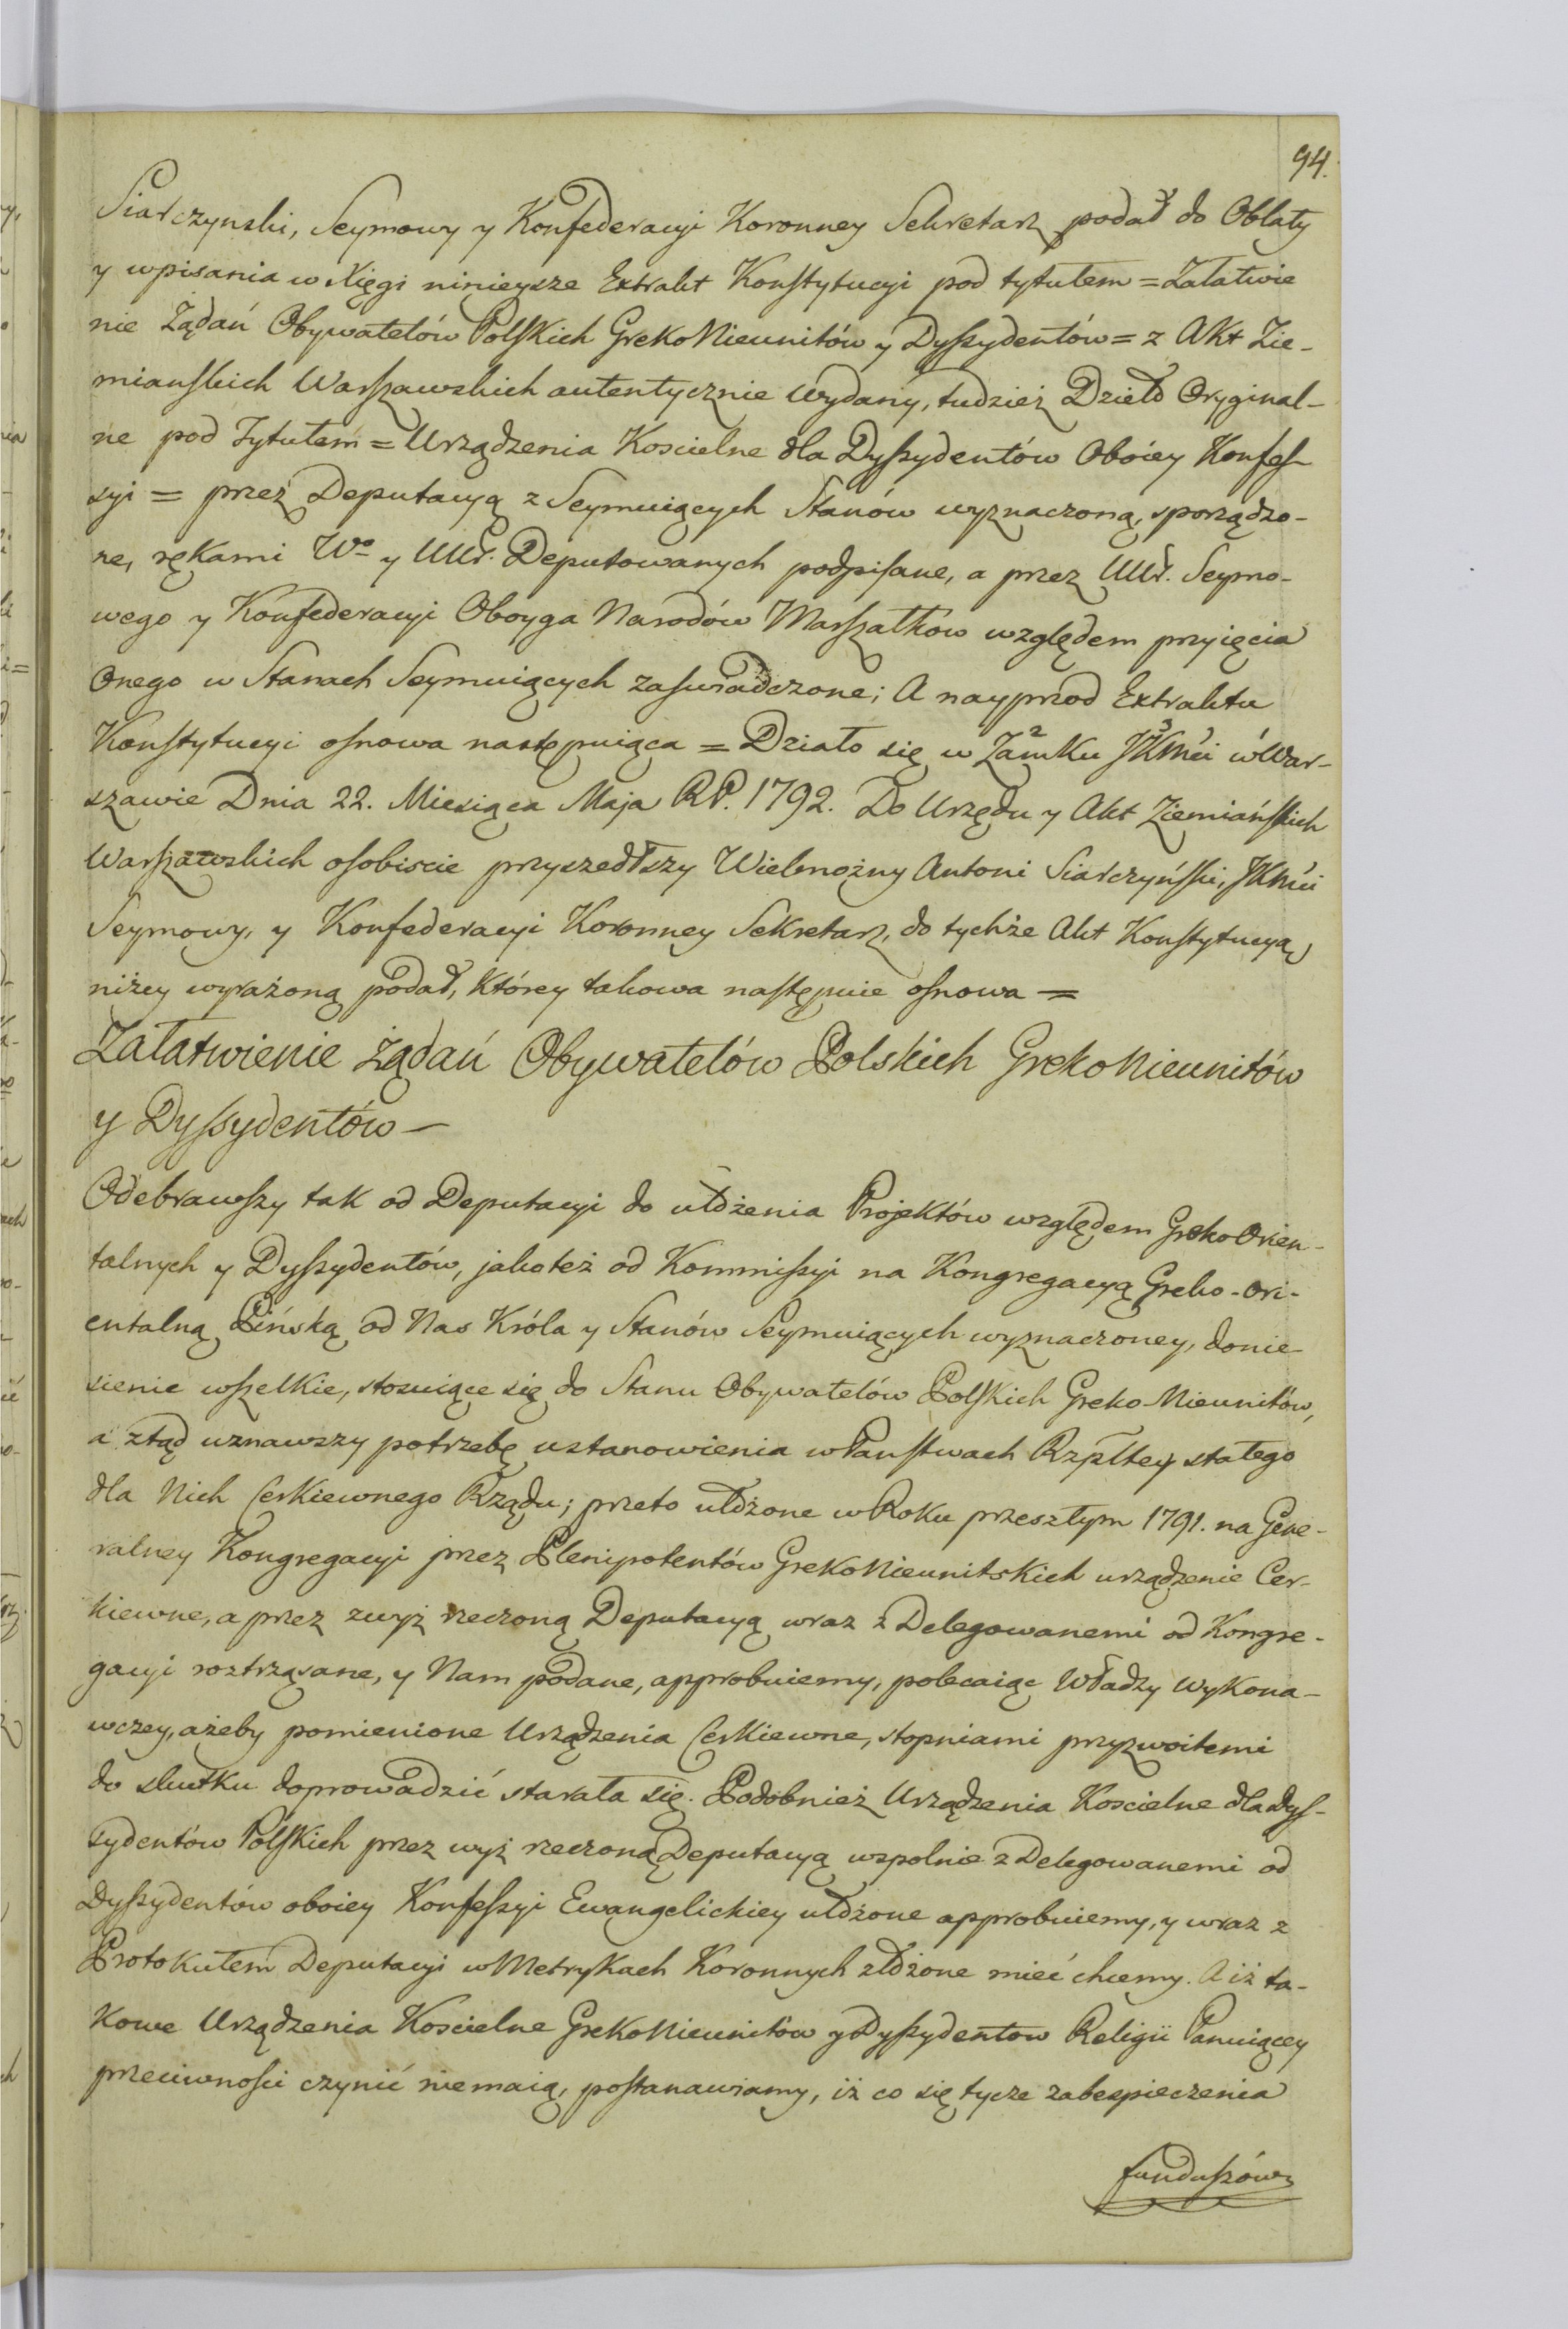 94.
Siarczynski, Seymowy y Konfederacyi Koronney Sekretarz podał do Oblaty
y wpisania w Xięgi ninieysze Extrakt Konstytucyi pod tytułem = Załatwie
nie Żądań Obywatelów Polskich GrekoNieunitów y Dyssydentów = z Akt Zie-
mianskich Warszawskich autentycznie wydany, tudzież Dzieło Oryginal-
ne pod Tytułem = Urządzenia Koscielne dla Dyssydentów Oboiey Konfes-
syi = przez Deputacyą z Seymuiących Stanów wyznaczoną, sporządzo-
ne, rękami Wo y UUr. Deputowanych podpisane, a przez UUr. Seymo-
wego y Konfederacyi Oboyga Narodów Marszałków względem przyięcia
Onego w Stanach Seymuiących zaswiadczone; A nayprzod Extraktu
Konstytucyi osnowa następuiąca = Działo się w Zamku JKMci w War-
szawie Dnia 22. Miesiąca Maja RP. 1792. Do Urzędu y Akt Ziemiańskich
Warszawskich osobiscie przyszedłszy Wielmożny Antoni Siarczyński, JKMci
Seymowy, y Konfederacyi Koronney Sekretarz, do tychże Akt Konstytucyą
niżey wyrażoną podał, Którey takowa następuie osnowa =
Załatwienie żądań Obywatelów Polskich GrekoNieunitów
y Dyssydentów —
Odebrawszy tak od Deputacyi do ułożenia Projektów względem GrekoOrien-
talnych y Dyssydentów, jakoteż od Kommissyi na Kongregacyą Greko-Ori-
entalną Pińską od Nas Króla y Stanów Seymuiących wyznaczoney, donie-
sienie wszelkie, stosuiące się do Stanu Obywatelów Polskich Greko Nieunitów,
a ztąd uznawszy potrzebę ustanowienia w Państwach Rzpltey stałego
dla Nich Cerkiewnego Rządu; przeto ułożone w Roku przeszłym 1791. na Gene-
ralney Kongregacyi przez Plenipotentów GrekoNieunitskich urządzenie Cer-
kiewne, a przez zwyż rzeczoną Deputacyą wraz z Delegowanemi od Kongre-
gacyi roztrząsane, y Nam podane, approbuiemy, polecaiąc Władzy wykona-
wczey, ażeby pomienione Urządzenia Cerkiewne, stopniami przyzwoitemi
do skutku doprowadzić starała się. Podobnież Urządzenia Koscielne dla Dys-
sydentów Polskich przez wyż rzeczoną Deputacyą wspolnie z Delegowanemi od
Dyssydentów oboiey Konfessyi Ewangelickiey ułożone approbuiemy, y wraz z
Protokułem Deputacyi w Metrykach Koronnych złożone mieć chcemy. A iż ta-
kowe Urządzenia Koscielne GrekoNieunitów y Dyssydentow Religii Panuiącey
przeciwności czynić niemaią, postanawiamy, iż co się tycze zabespieczenia
funduszów